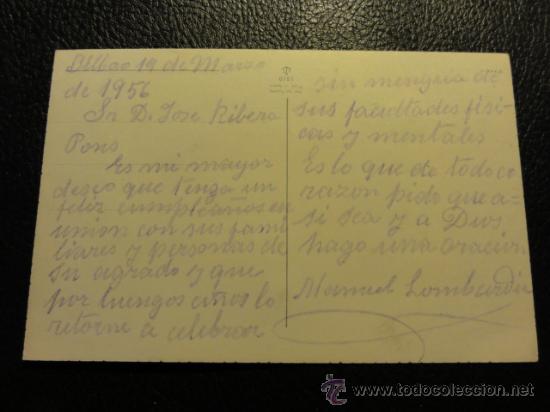 Bilbao 19 de Marzo
de 1956
Sr. D. Jose Ribera
Pons
Es mi mayor
deseo que tenga un
feliz cumpleaños en
union con sus fami
liares y personas de
su agrado y que
por luengos años lo
retorne a celebrar
sin mengua de
sus facultades fisi
cas y mentales
Es lo que de todo co
razon pido que a-
si sea y a Dios
hago una oracion
Manuel Lombardia
todocoleccion
www.todocoleccion.net